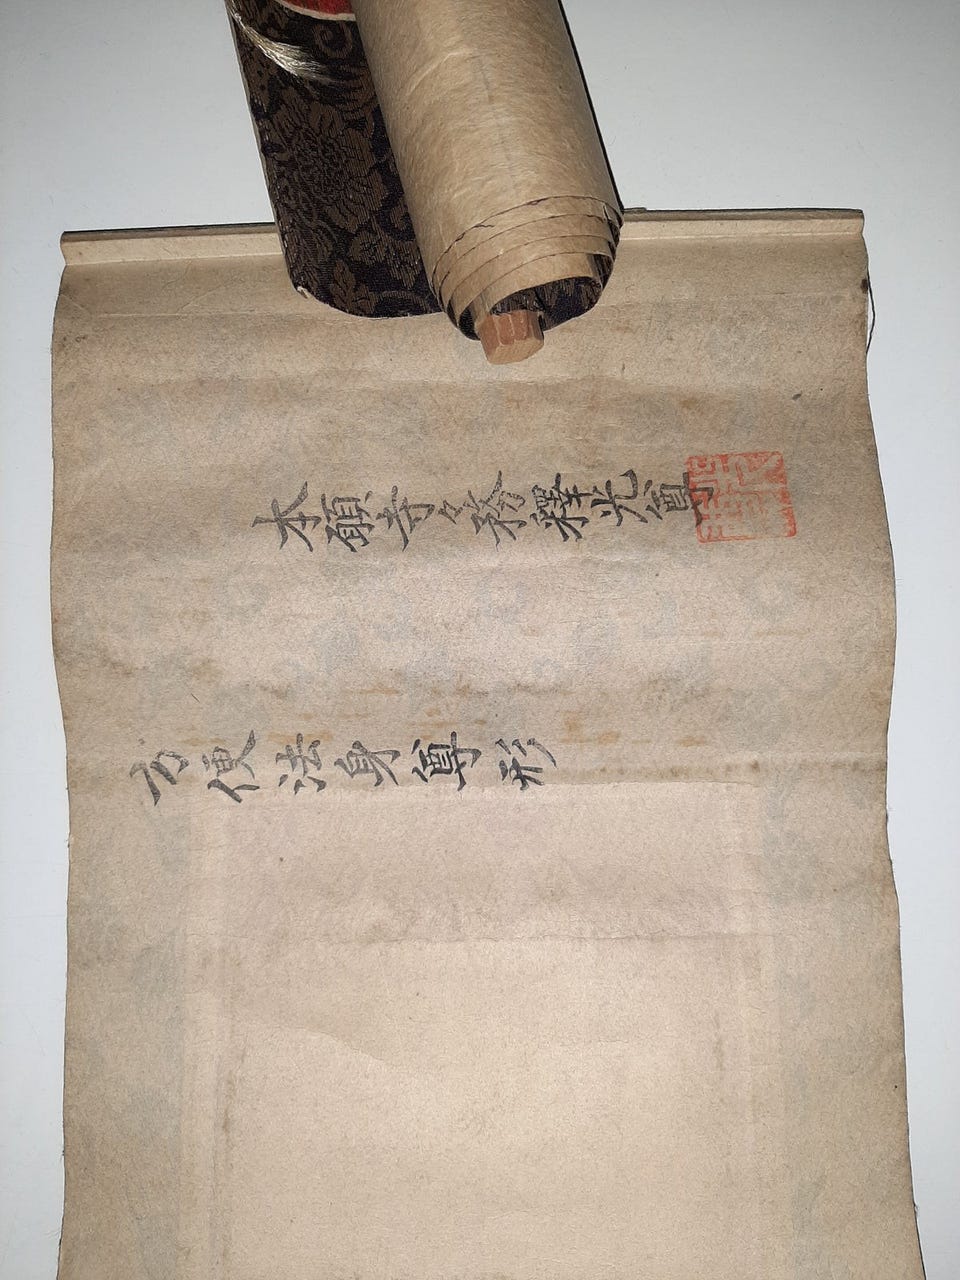 本願寺々務釋光尊
方便法身尊形